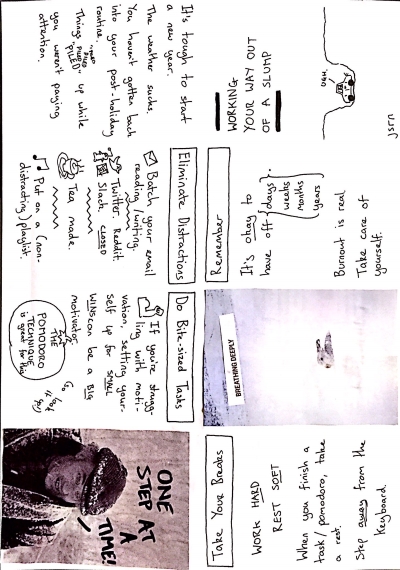 jsrn
UGH.
WORKING
YOUR WAY OUT
OF A SLUMP
It's tough to start
a new year.
The weather sucks.
You haven't gotten back
into your post-holiday
routine.
Things "PILED" up while
you weren't paying
attention.
Eliminate Distractions
Batch your email
reading/writing.
Twitter. Reddit.
Slack. CLOSED
Tea made.
Put on a (non-
distracting) playlist.
Do Bite-sized Tasks
If you're strugg-
ling with moti-
vation, setting your-
self up for SMALL
WINS can be a BIG
motivator.
THE
POMODORO
TECHNIQUE
is great for this!
ONE
STEP AT
A
TIME!
Remember
It's okay to
have off
days
weeks
months
years
Burnout is real
Take care of
yourself.
BREATHING DEEPLY
Take Your Breaks
WORK HARD
REST SOFT
When you finish a
task/pomodoro, take
a rest.
Step away from the
keyboard.